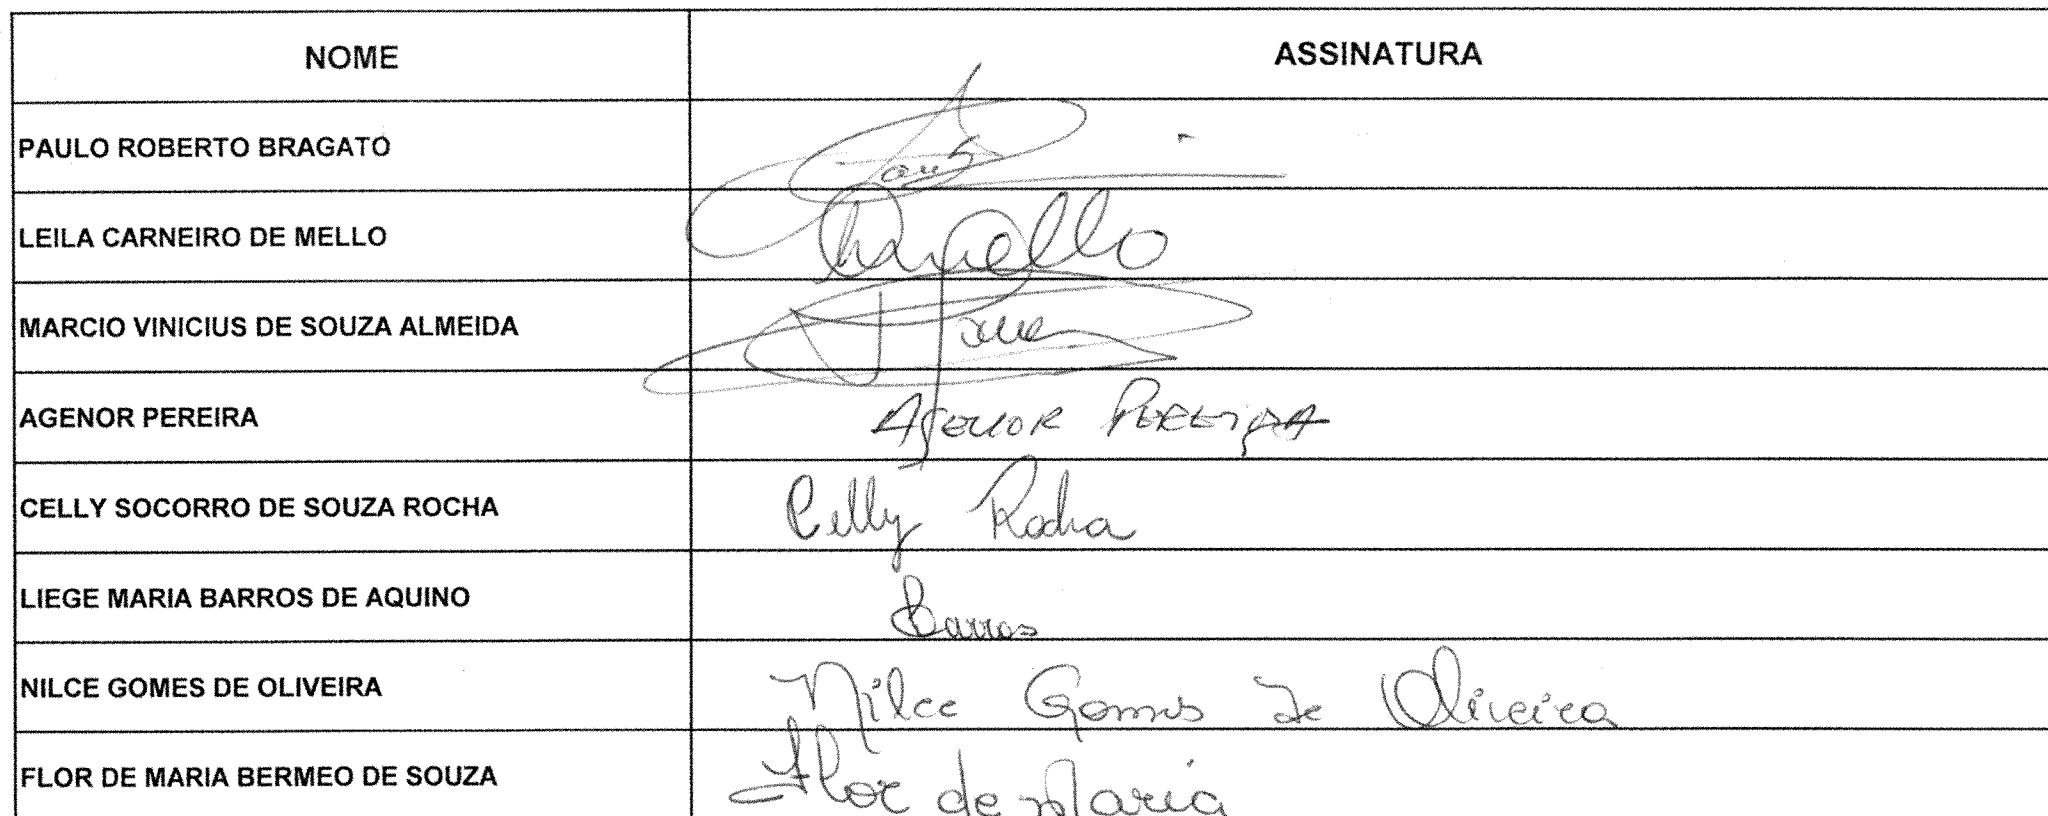 NOME ASSINATURA
PAULO ROBERTO BRAGATO
LEILA CARNEIRO DE MELLO
MARCIO VINICIUS DE SOUZA ALMEIDA
AGENOR PEREIRA AGENOR PEREIRA
CELLY SOCORRO DE SOUZA ROCHA Celly Rocha
LIEGE MARIA BARROS DE AQUINO Barros
NILCE GOMES DE OLIVEIRA Nilce Gomes de Oliveira
FLOR DE MARIA BERMEO DE SOUZA Flor de Maria